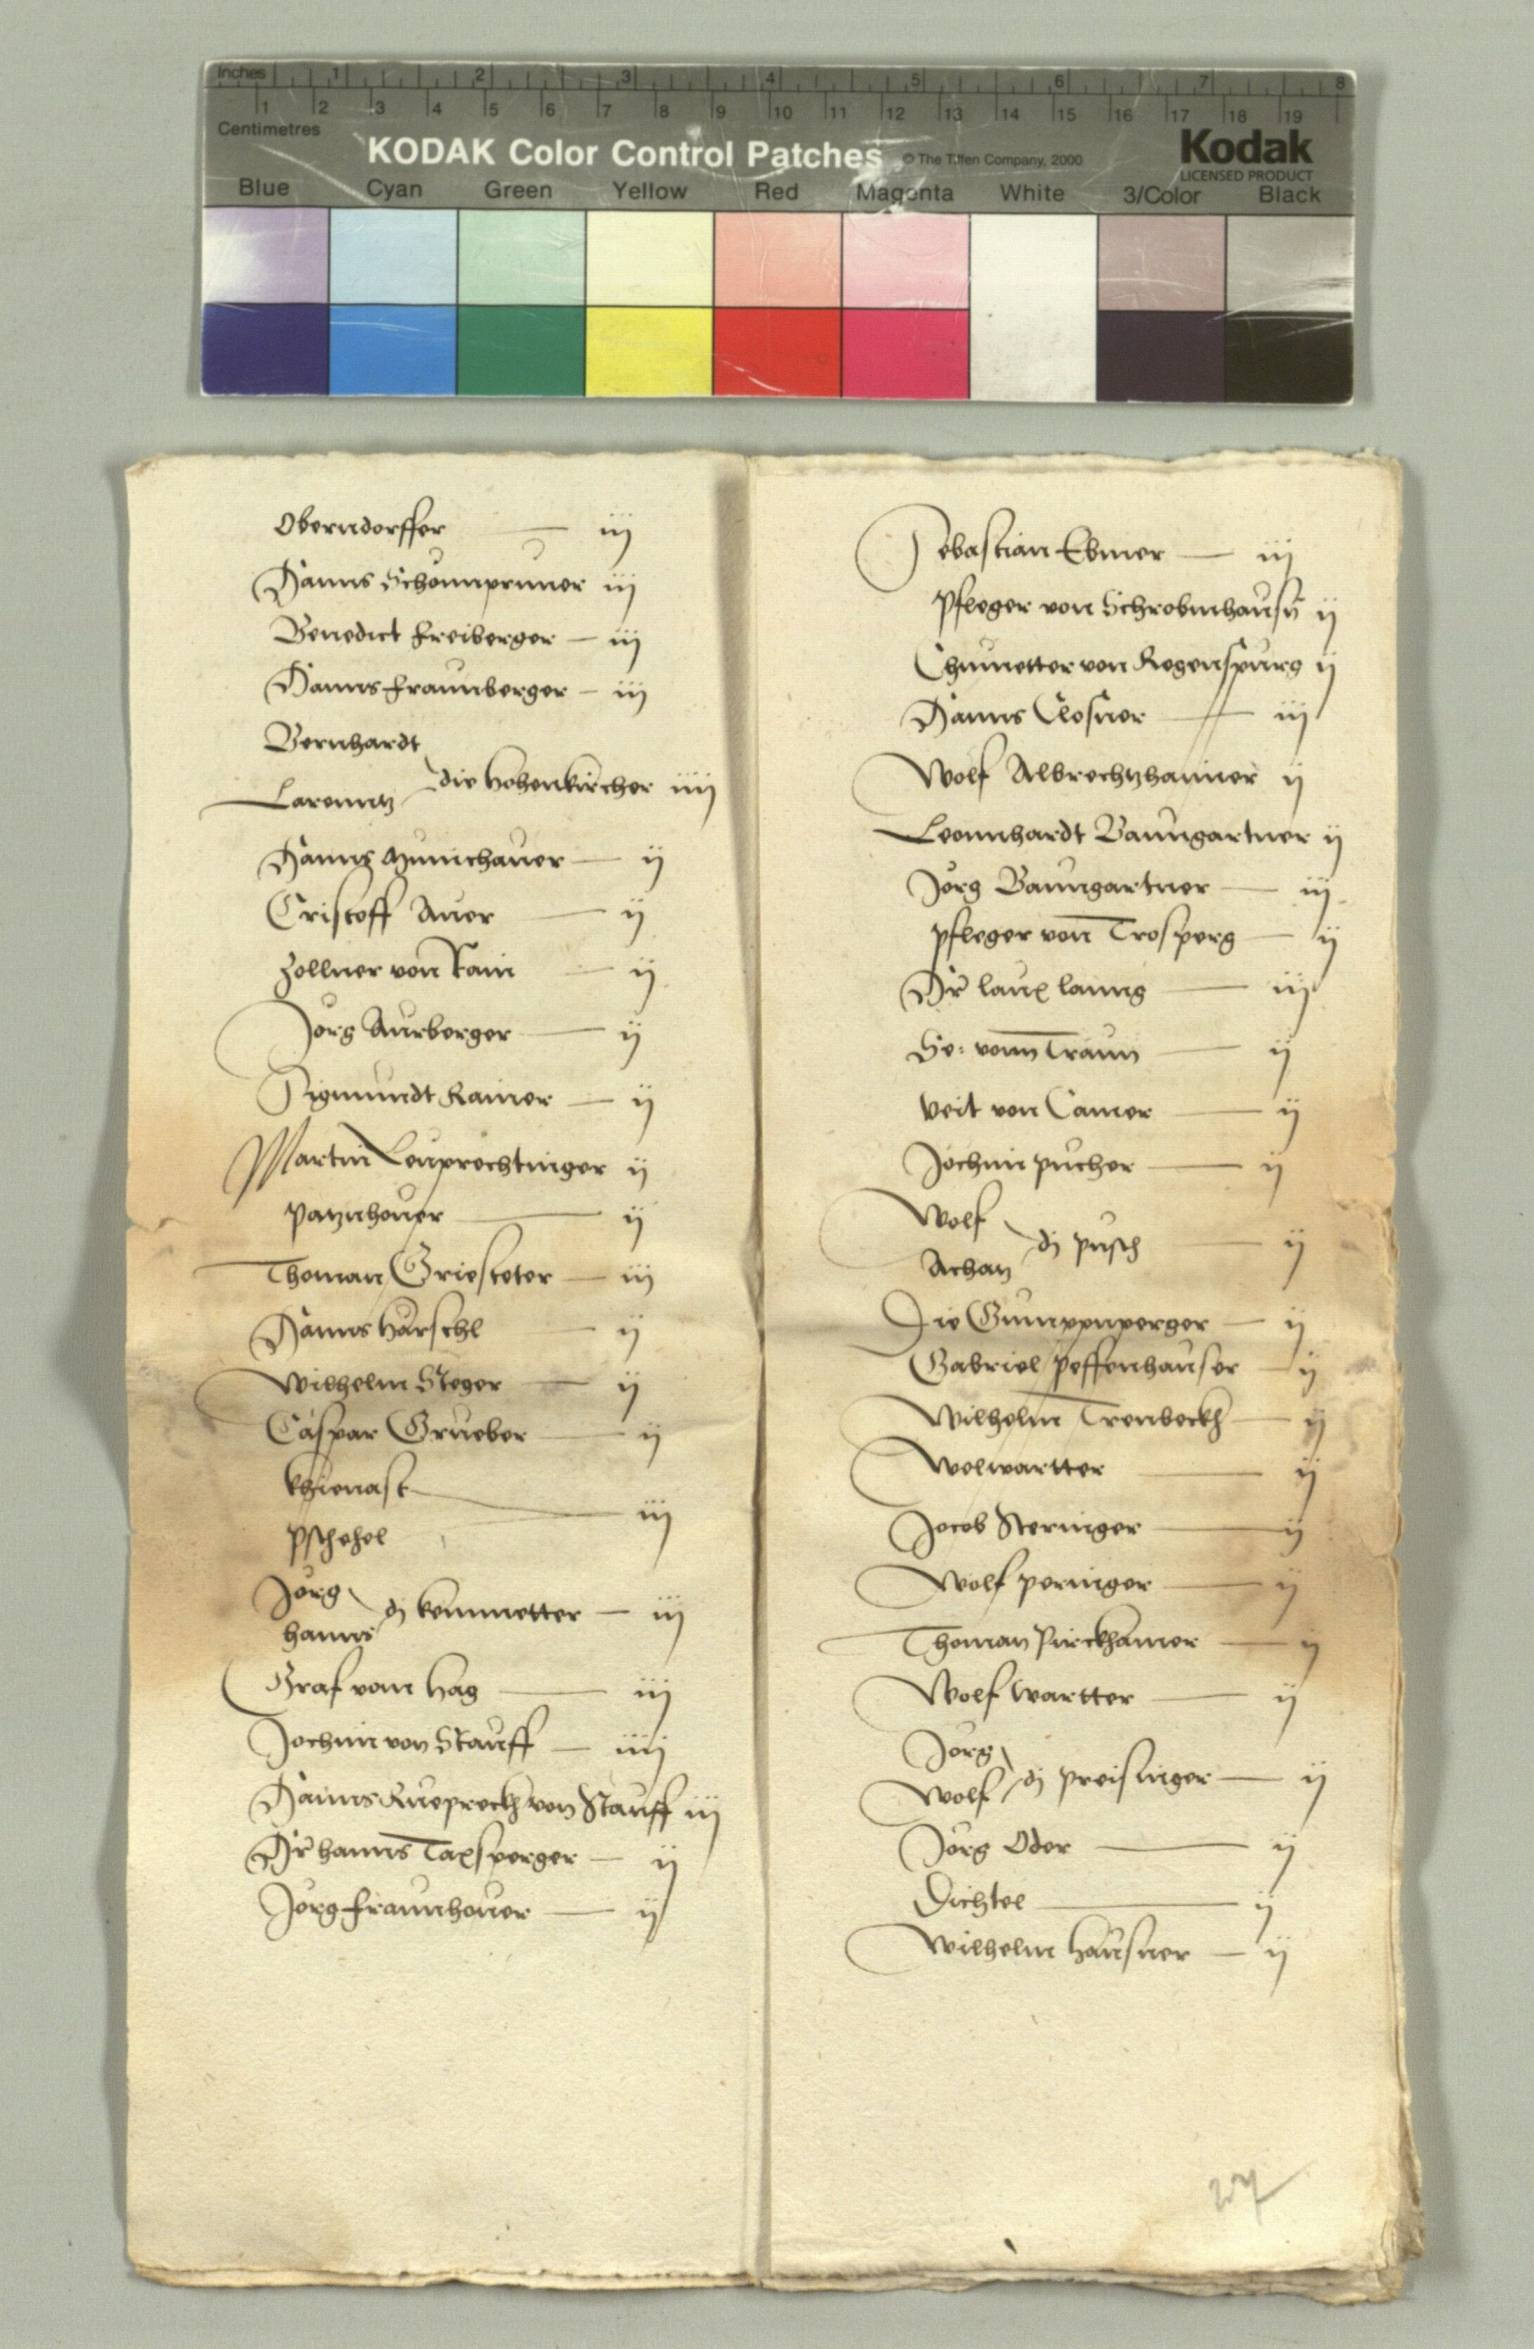 Inches 1 2 3 4 5 6 7 8
1 2 3 4 5 6 7 8 9 10 11 12 13 14 15 16 17 18 19
Centimetres
KODAK Color Control Patches © The Tiffen Company, 2000 Kodak
LICENSED PRODUCT
Blue Cyan Green Yellow Red Magenta White 3/Color Black
Oberndorffer — iij
Hanns Schönnpruner iij
Benedict Freiberger — iij
Hanns Fraunberger — iij
Bernhardt
Larenntz die Hohenkircher iiij
Hanns Munichauer — ij
Cristoff Auer — ij
Zollner von Rain — ij
Jörg Aurberger — ij
Sigmundt Rainer — ij
Martin Leuprechtinger ij
Patznhover — ij
Thoman Griesteter — iij
Hanns Härschl — ij
Wilhelm Steger — ij
Caspar Grueber — ij
Khienast — iij
Jörg
Hanns dj Kemmetter — iij
Graf vom Hag — iij
Jochim von Stauff — iiij
Hanns Rueprecht von Stauff iij
Hr Hanns Taxsperger — ij
Jörg Fraunhover — ij
Sebastian Ebmer — iij
Pfleger von Schrobmhausn ij
von Regenspurg ij
Hanns Closner — iij
Wolf Albrechtzhaimer ij
Leonnhardt Baumgartner ij
Jörg Baumgartner — iij
Pfleger von Trosperg — ij
Dr laux lanng — iij
He: vonn Traun — ij
Veit von Camer — ij
Jochim Pucher — ij
Wolf
Achatz dj Pusch — ij
Die Gumppnperger — ij
Gabriel Peffenhauser — ij
Wilhelm Trenbeckh — ij
Wolwartter — ij
Jocob Sterniger — ij
Wolf Perniger — ij
Thoman Pirckhamer — ij
Wolf Wartter — ij
Jörg
Wolf dj Preisinger — ij
Jörg Oder — ij
Dichtel — ij
Wilhelm Hausner — ij
27